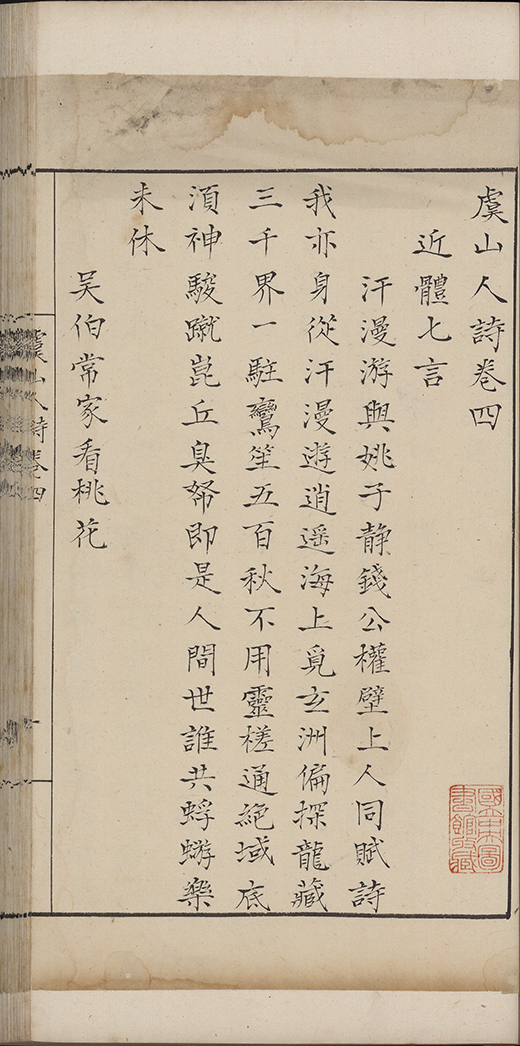 虞山人詩卷四
近體七言
汗漫游與姚子静錢公權壁上人同賦詩
我亦身從汗漫遊逍遥海上覓玄洲偏探龍藏
三千界一駐鸞笙五百秋不用靈槎通絶域底
湏神駿蹴崑丘臭帑即是人間世誰共蜉蝣樂
未休
吴伯常家看桃花
虞山人詩卷四
國立中央圖書館收藏